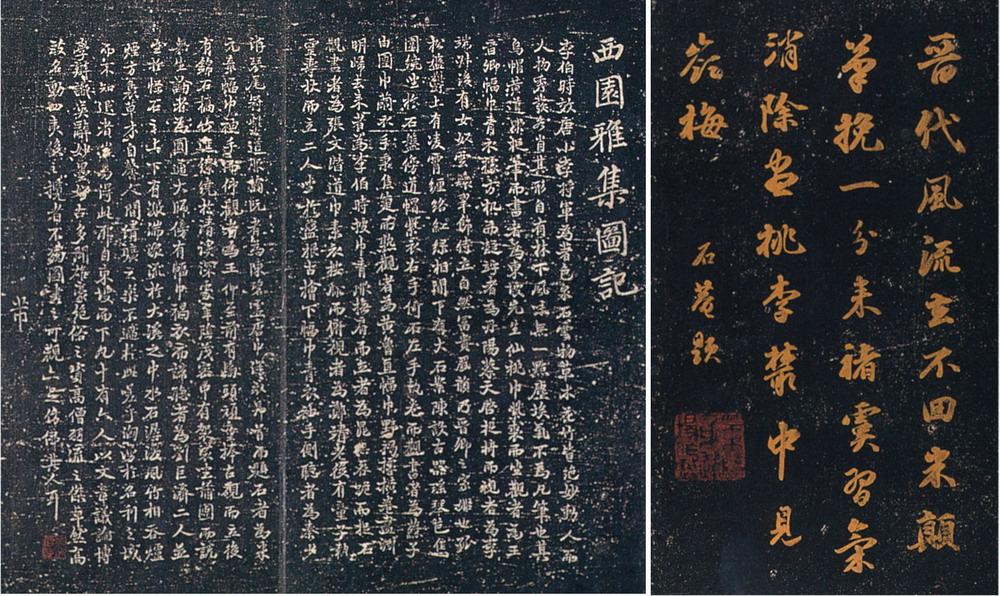 西園雅集圖記
李伯時效唐小李將軍為著色泉石雲物草木花竹皆絕妙動人而
人物秀發各肖其形自有林下風味無一點塵埃氣不為凡筆也其
烏帽黃道服捉筆而書者為東坡先生仙桃巾紫裘而坐觀者為王
晉卿幅巾青衣據方机而凝竚者為丹陽蔡天啟捉椅而視者為李
端叔後有女奴雲鬟翠飾侍立自然富貴風韻乃晉卿之家姬也孤
松盤鬱上有凌霄纏絡紅綠相間下有大石案陳設古器瑤琴芭蕉
圍繞坐於石盤傍道帽紫衣右手倚石左手執卷而觀書者為蘇子
由團巾繭衣手秉蕉箑而熟觀者為黃魯直幅巾野褐據橫卷畫淵
明歸去來者為李伯時披巾青服撫肩而立者為晁無咎跪而捉石
觀畫者為張文潛道巾素衣按膝而俯視者為鄭靖老後有童子執
靈壽杖而立二人坐於盤根古檜下幅巾青衣袖手側聽者為秦少
游琴尾冠紫道服摘阮者為陳碧虛唐巾深衣昂首而題石者為米
元章幅巾袖手而仰觀者為王仲至前有鬅頭頑童捧古硯而立後
有錦石橋竹逕繚繞於清溪深處翠陰茂密中有袈裟坐蒲團而說
無生論者為圓通大師傍有幅巾褐衣而諦聽者為劉巨濟二人並
坐於怪石之上下有激湍潨流於大溪之中水石潺湲風竹相吞爐
煙方裊草木自馨人間清曠之樂不過於此嗟乎洶湧於名利之域
而不知退者豈易得此耶自東坡而下凡十有六人以文章議論博
學辨識英辭妙墨好古多聞雄豪絕俗之資高僧羽流之傑卓然高
致名動四夷後之攬者不獨圖畫之可觀亦足仿佛其人耳
芾
晉代風流去不回米顛
筆挽一分來褚虞習氣
消除盡桃李叢中見
嶺梅
石菴題